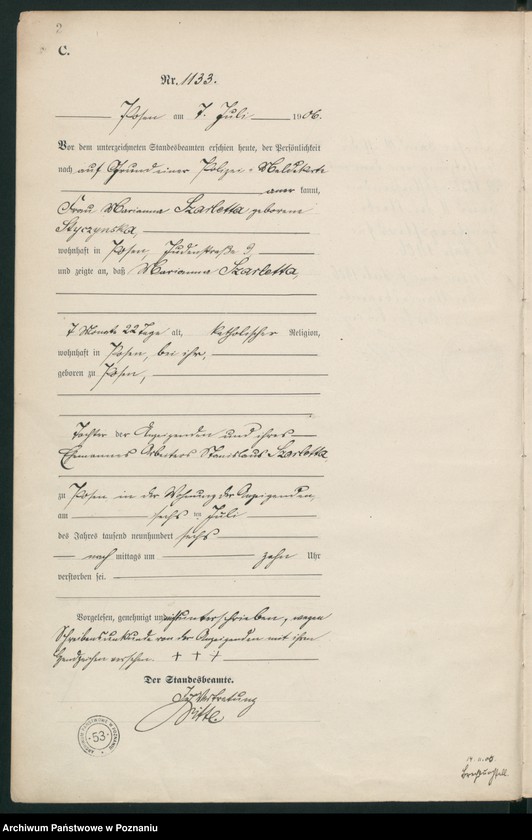 2
C.
Nr. 1133.
Posen am 7. Juli 1906.
Vor dem unterzeichneten Standesbeamten erschien heute, der Persönlichkeit
nach auf Grund einer Polizei-Meldekarte
aner kannt,
Frau Marianna Szarletta geborene
Styczynska,
wohnhaft in Posen, Judenstraße 9,
und zeigte an, daß Marianna Szarletta,
7 Monate 22 Tage alt, katholischer Religion,
wohnhaft in Posen, bei ihr,
geboren zu Posen,
Tochter der Anzeigenden und ihres
Ehemannes Arbeiters Stanislaus Szarletta
zu Posen in der Wohnung der Anzeigenden,
am sechs ten Juli
des Jahres tausend neunhundert sechs
nach mittags um zehn Uhr
verstorben sei.
Vorgelesen, genehmigt und nicht unterschrieben, wegen
Schreibensunkunde von der Anzeigenden mit ihren
Handzeichen versehen. + + +
Der Standesbeamte.
In Vertretung
ARCHIWUM PAŃSTWOWE W POZNANIU
53
Archiwum Państwowe w Poznaniu